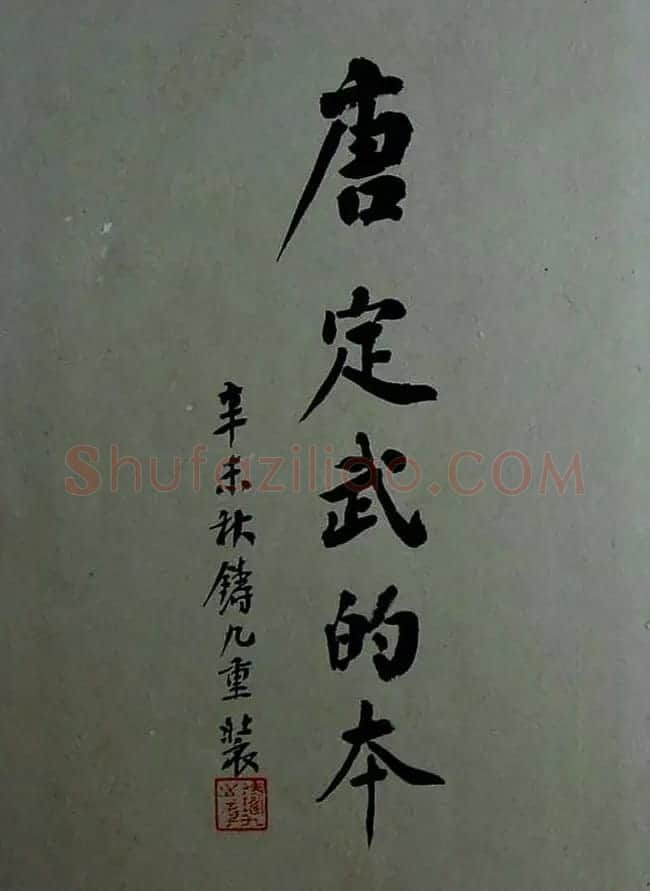 唐定武的本
辛未秋鑄九重裝
Shufaziliao.COM